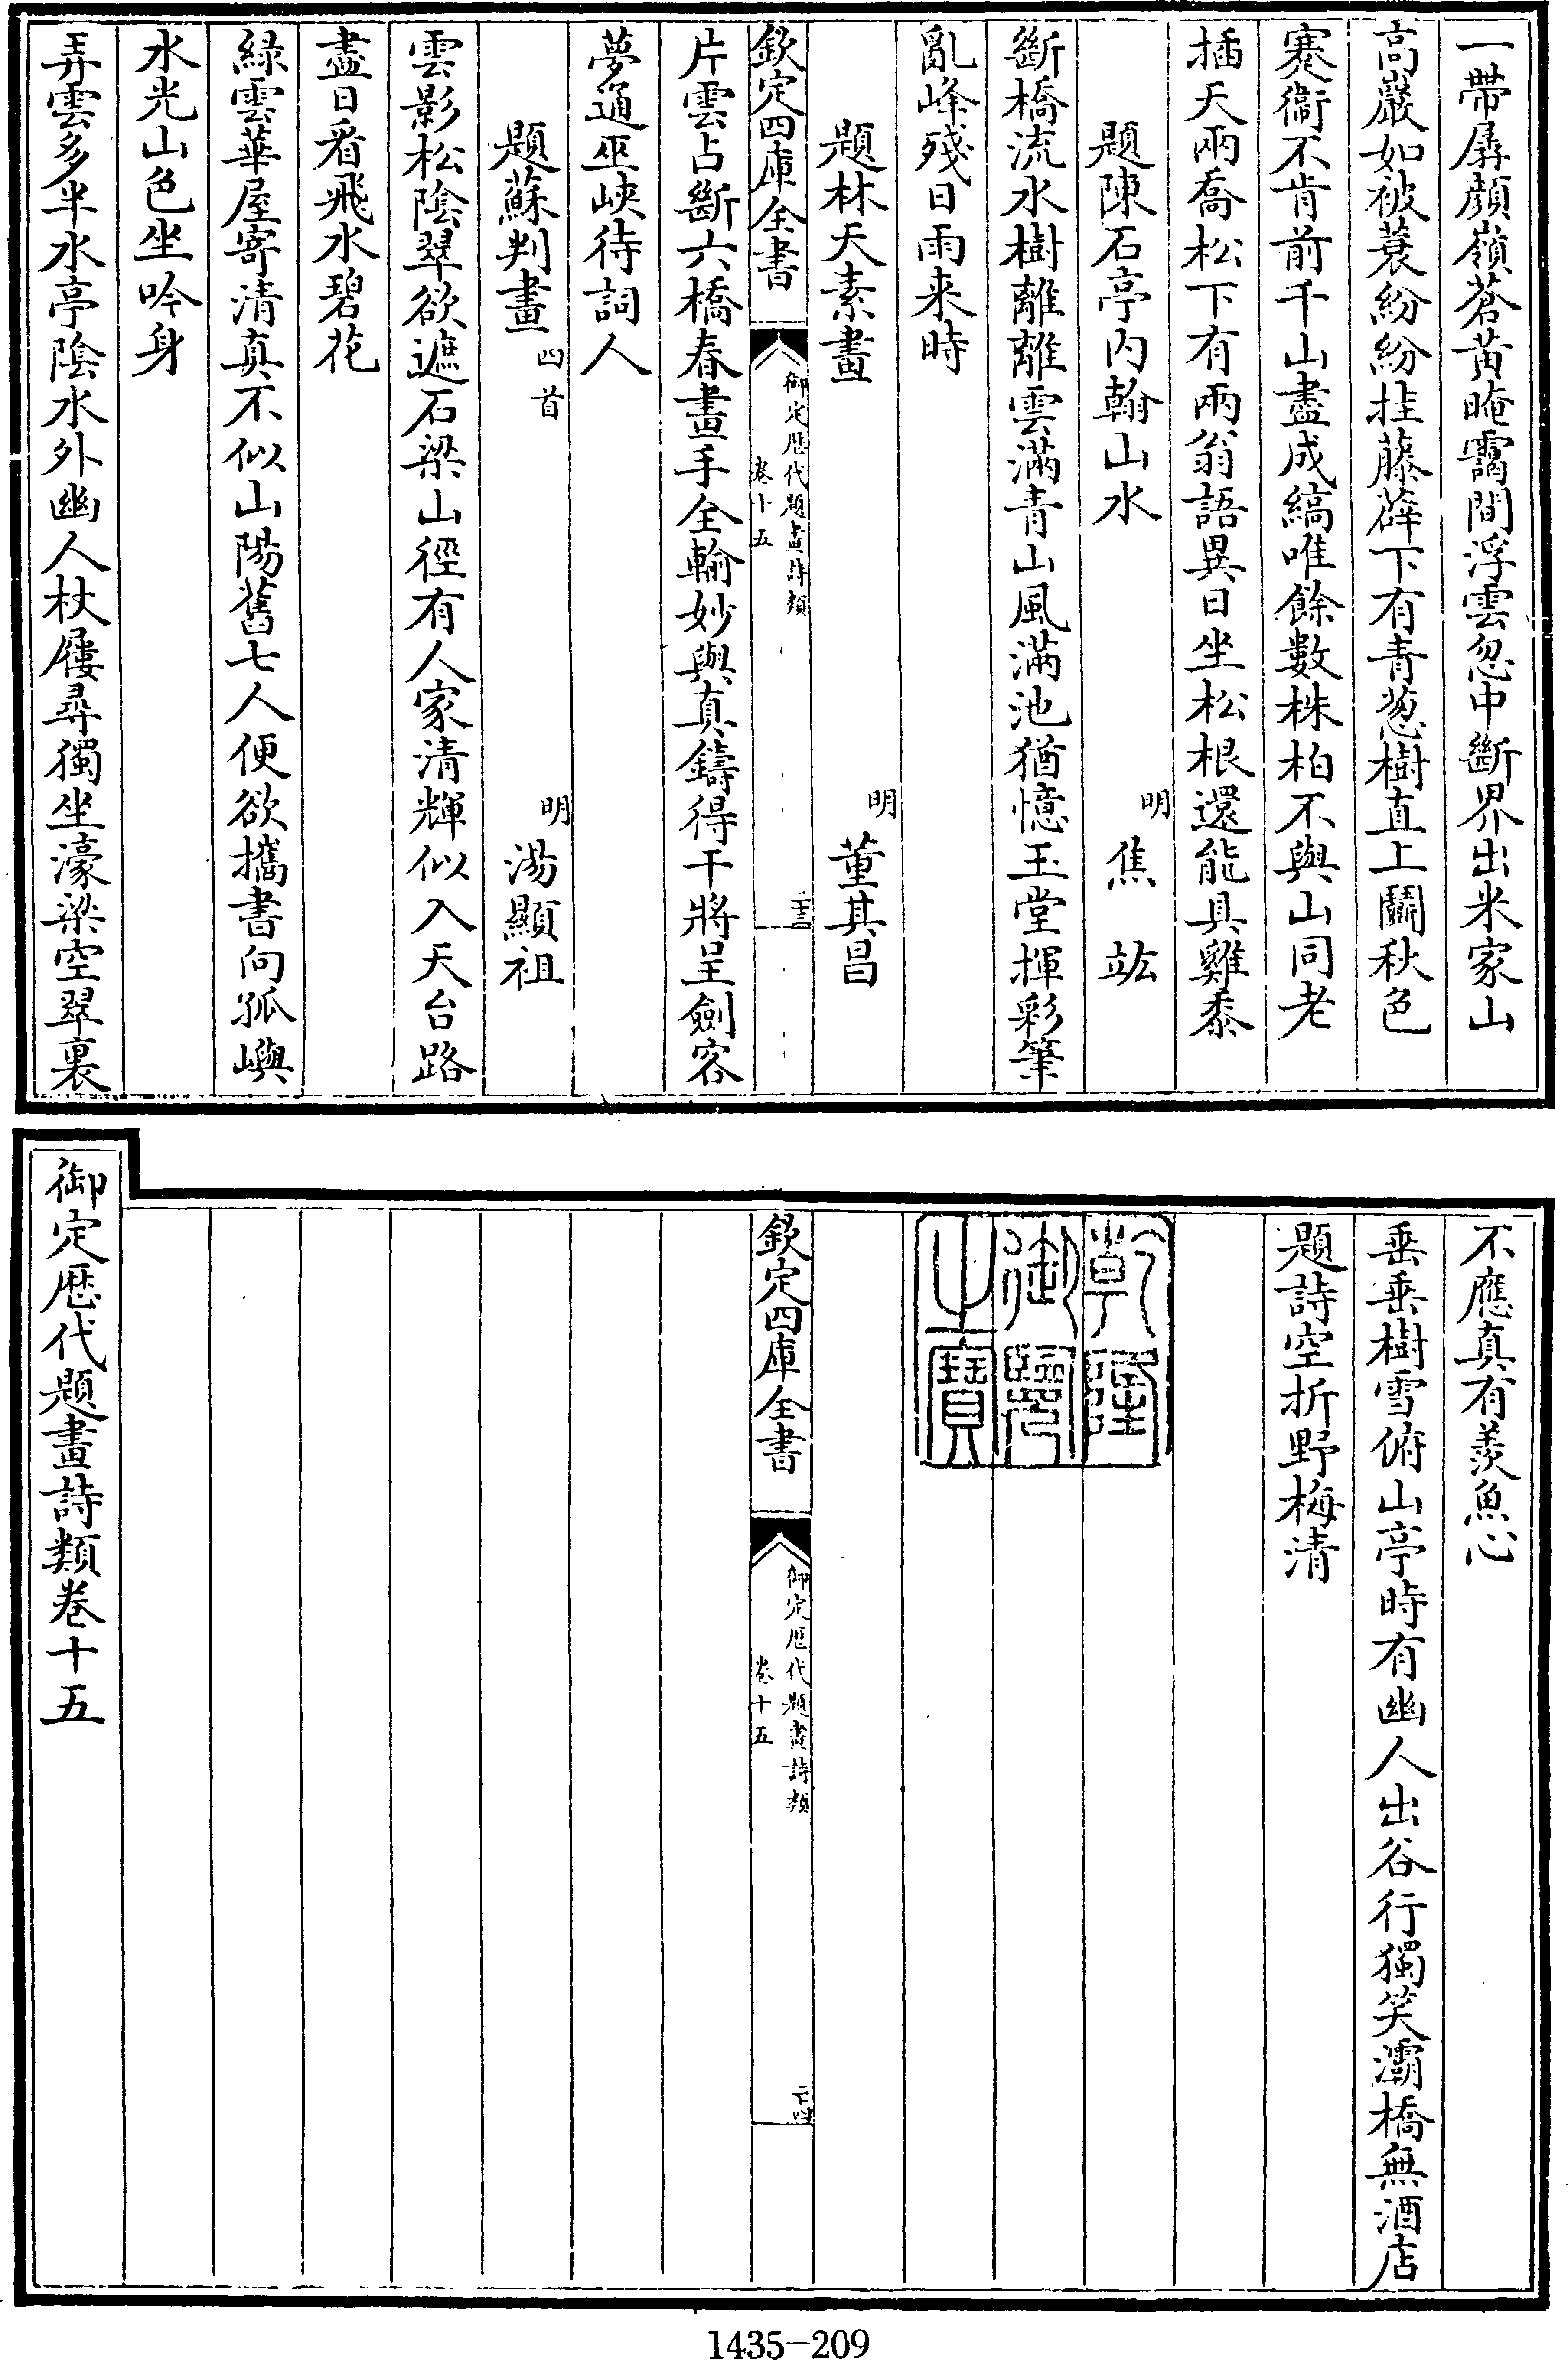 一帶孱顔嶺蒼黃晻靄間浮雲忽中斷界出米家山
高巖如被蓑紛紛挂藤薜下有青葱樹直上鬬秋色
蹇衞不肯前千山盡成縞唯餘數株柏不與山同老
插天兩喬松下有兩翁語異日坐松根還能具雞黍
題陳石亭内翰山水 明 焦竑
斷橋流水樹離離雲滿青山風滿池猶憶玉堂揮彩筆
亂峰殘日雨来時
題林天素畫 明 董其昌
欽定四庫全書 御定歴代題畫詩類 卷十五 二十三
片雲占斷六橋春畫手全輸妙與真鑄得干將呈劍客
夢通巫峽待詞人
題蘇判畫 四首 明 湯顯祖
雲影松陰翠欲遮石梁山徑有人家清輝似入天台路
盡日看飛水碧花
緑雲華屋寄清真不似山陽舊七人便欲攜書向孤嶼
水光山色坐吟身
弄雲多半水亭陰水外幽人杖屨尋獨坐濠梁空翠裏
不應真有羨魚心
垂垂樹雪俯山亭時有幽人出谷行獨笑灞橋無酒店
題詩空折野梅清
乾隆
御覽
之寶
欽定四庫全書 御定歴代題畫詩類 卷十五 二十四
御定歴代題畫詩類卷十五
1435-209